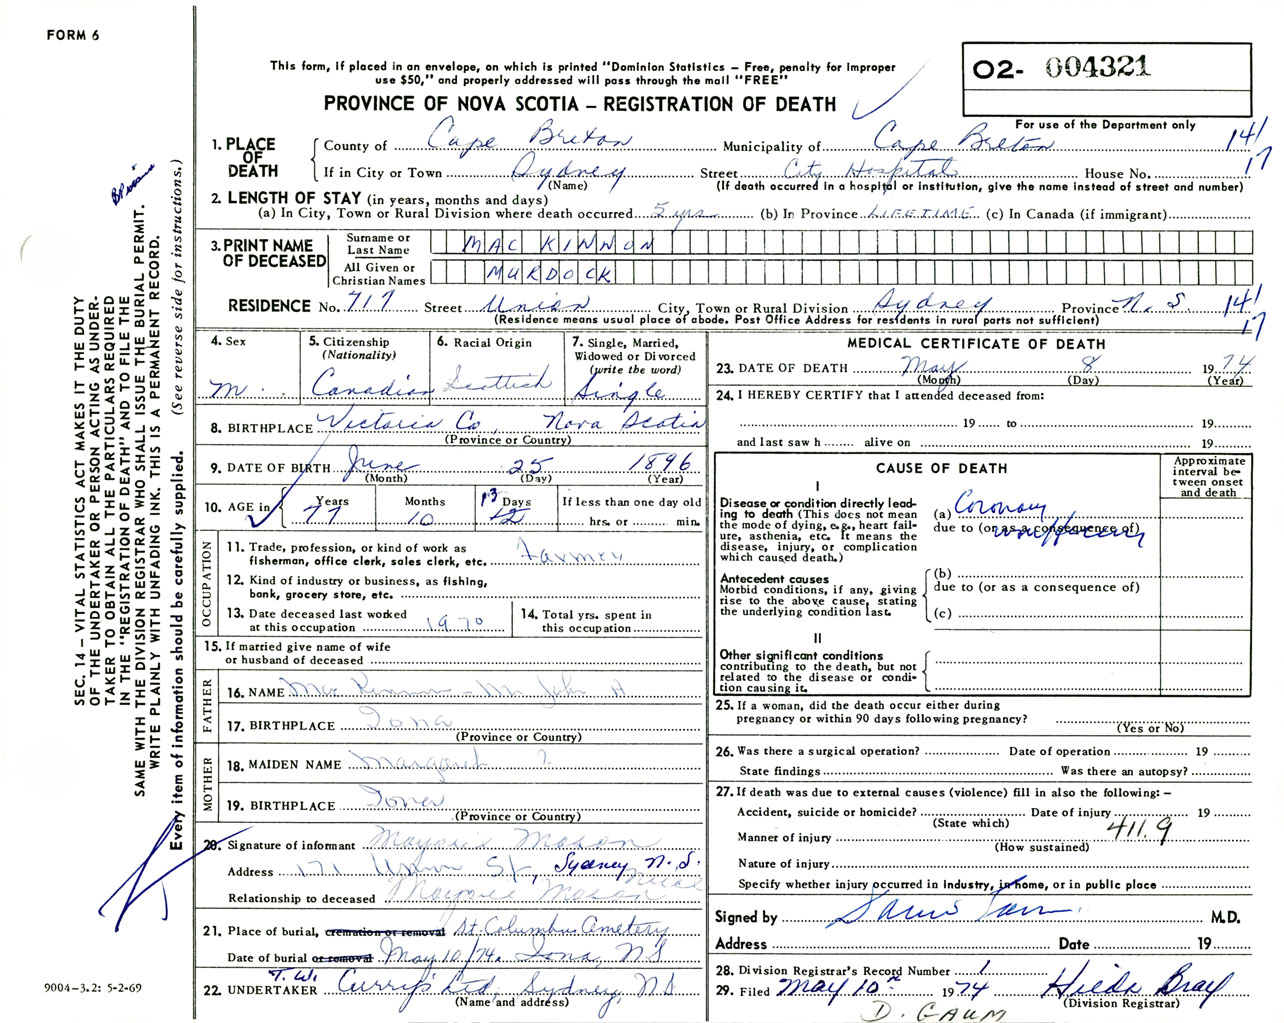 FORM 6
This form, if placed in an envelope, on which is printed "Dominion Statistics – Free, penalty for improper
use $50," and properly addressed will pass through the mail "FREE"
PROVINCE OF NOVA SCOTIA – REGISTRATION OF DEATH
O2- 004321
For use of the Department only
1. PLACE OF DEATH County of Cape Breton Municipality of Cape Breton 141
If in City or Town Sydney Street City Hospital House No. 17
(Name) (If death occurred in a hospital or institution, give the name instead of street and number)
2. LENGTH OF STAY (in years, months and days)
(a) In City, Town or Rural Division where death occurred 5 yrs. (b) In Province LIFETIME (c) In Canada (if immigrant)
3. PRINT NAME OF DECEASED Surname or Last Name MAC KINNON
All Given or Christian Names MURDOCK
RESIDENCE No. 717 Street Union City, Town or Rural Division Sydney Province N. S. 141
(Residence means usual place of abode. Post Office Address for residents in rural parts not sufficient) 17
4. Sex M.
5. Citizenship (Nationality) Canadian
6. Racial Origin Scottish
7. Single, Married, Widowed or Divorced (write the word) Single
8. BIRTHPLACE Victoria Co, Nova Scotia
(Province or Country)
9. DATE OF BIRTH June 25 1896
(Month) (Day) (Year)
10. AGE in Years 77 Months 10 Days 13 12 If less than one day old
hrs. or min.
OCCUPATION
11. Trade, profession, or kind of work as
fisherman, office clerk, sales clerk, etc. Farmer
12. Kind of industry or business, as fishing,
bank, grocery store, etc.
13. Date deceased last worked
at this occupation 1970
14. Total yrs. spent in
this occupation
15. If married give name of wife
or husband of deceased
FATHER
16. NAME Mac Kinnon - Mr John A
17. BIRTHPLACE Iona
(Province or Country)
MOTHER
18. MAIDEN NAME Margaret ?
19. BIRTHPLACE Iona
(Province or Country)
20. Signature of informant Marjorie Mason
Address 171 Union St, Sydney N. S.
Relationship to deceased Marjorie Mason Niece
21. Place of burial, cremation or removal St. Columbus Cemetery
Date of burial or removal May 10/74. Iona, NS
22. UNDERTAKER T. W. Currip's Ltd, Sydney, NS
(Name and address)
MEDICAL CERTIFICATE OF DEATH
23. DATE OF DEATH May 8 1974
(Month) (Day) (Year)
24. I HEREBY CERTIFY that I attended deceased from:
19 to 19
and last saw h alive on 19
CAUSE OF DEATH
Approximate interval between onset and death
I
Disease or condition directly lead-
ing to death (This does not mean
the mode of dying, e.g., heart fail-
ure, asthenia, etc. It means the
disease, injury, or complication
which caused death.)
(a) Coronary
due to (or as a consequence of)
Antecedent causes
Morbid conditions, if any, giving
rise to the above cause, stating
the underlying condition last.
(b)
due to (or as a consequence of)
(c)
II
Other significant conditions
contributing to the death, but not
related to the disease or condi-
tion causing it.
25. If a woman, did the death occur either during
pregnancy or within 90 days following pregnancy?
(Yes or No)
26. Was there a surgical operation? Date of operation 19
State findings Was there an autopsy?
27. If death was due to external causes (violence) fill in also the following: –
Accident, suicide or homicide? Date of injury 19
(State which)
411.9
Manner of injury
(How sustained)
Nature of injury
Specify whether injury occurred in Industry, in home, or in public place
Signed by M.D.
Address Date 19
28. Division Registrar's Record Number 1
29. Filed May 10th 1974 Hilda Bray
(Division Registrar)
D. GAUM
SEC. 14 – VITAL STATISTICS ACT MAKES IT THE DUTY
OF THE UNDERTAKER OR PERSON ACTING AS UNDER-
TAKER TO OBTAIN ALL THE PARTICULARS REQUIRED
IN THE "REGISTRATION OF DEATH" AND TO FILE THE
SAME WITH THE DIVISION REGISTRAR WHO SHALL ISSUE THE BURIAL PERMIT.
WRITE PLAINLY WITH UNFADING INK. THIS IS A PERMANENT RECORD.
Every item of information should be carefully supplied. (See reverse side for instructions.)
9004–3.2: 5-2-69